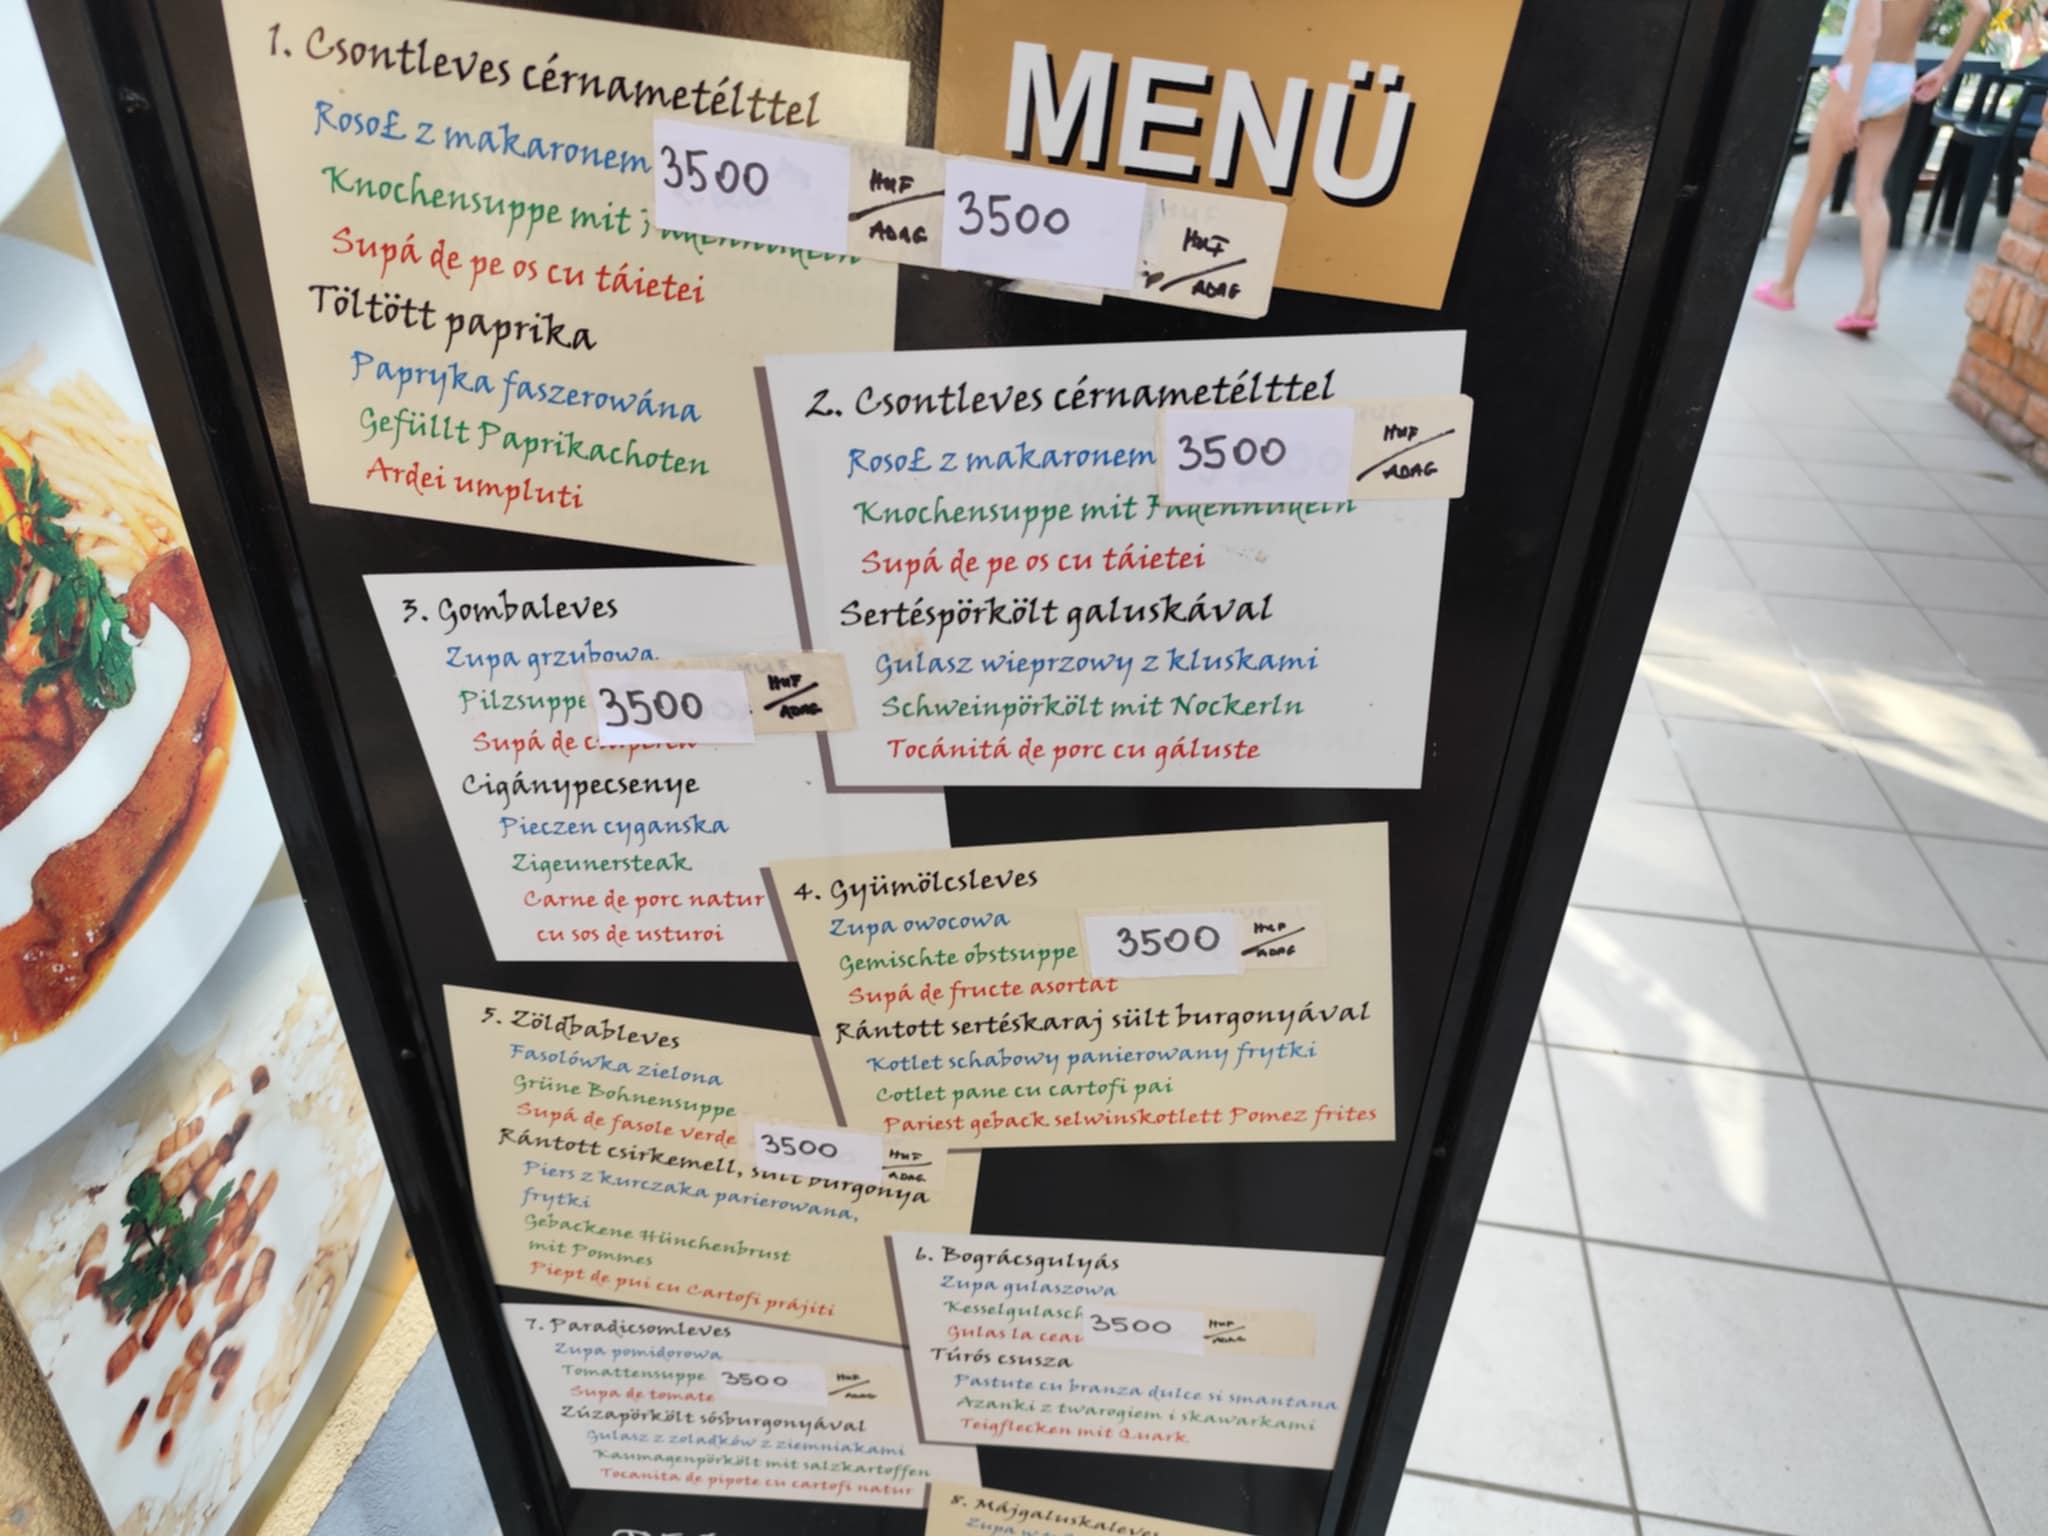 MENÜ
1. Csontleves cérnametélttel
Roso£ z makaronem
3500
HUF
ADAG
3500
HUF
ADAG
Knochensuppe mit
Supá de pe os cu táietei
Töltött paprika
Papryka faszerowána
Gefüllt Paprikachoten
Ardei umpluti
2. Csontleves cérnametélttel
Roso£ z makaronem
3500
HUF
ADAG
Knochensuppe mit Fadennudeln
Supá de pe os cu táietei
Sertéspörkölt galuskával
Gulasz wieprzowy z kluskami
Schweinpörkölt mit Nockerln
Tocánitá de porc cu gáluste
3. Gombaleves
Zupa grzubowa
Pilzsuppe
3500
HUF
ADAG
Supá de
Cigánypecsenye
Pieczen cyganska
Zigeunersteak
Carne de porc natur
cu sos de usturoi
4. Gyümölcsleves
Zupa owocowa
Gemischte obstsuppe
3500
HUF
ADAG
Supá de fructe asortat
Rántott sertéskaraj sült burgonyával
Kotlet schabowy panierowany frytki
Cotlet pane cu cartofi pai
Pariest geback selwinskotlett Pomez frites
5. Zöldbableves
Fasolówka zielona
Grüne Bohnensuppe
Supá de fasole verde
3500
HUF
ADAG
Rántott csirkemell, sült burgonya
Piers z kurczaka parierowana,
frytki
Gebackene Hünchenbrust
mit Pommes
Piept de pui cu Cartofi prájiti
6. Bográcsgulyás
Zupa gulaszowa
Kesselgulasch
3500
HUF
ADAG
Gulas la
Túrós csusza
Pastute cu branza dulce si smantana
Azanki z twarogiem i skawarkami
Teigflecken mit Quark
7. Paradicsomleves
Zupa pomidorowa
Tomattensuppe
3500
HUF
ADAG
Supa de tomate
Zúzapörkölt sósburgonyával
Gulasz z zoladków z ziemniakami
Kaumagenpörkölt mit salzkartoffen
Tocanita de pipote cu cartofi natur
8. Májgaluskaleves
Zupa